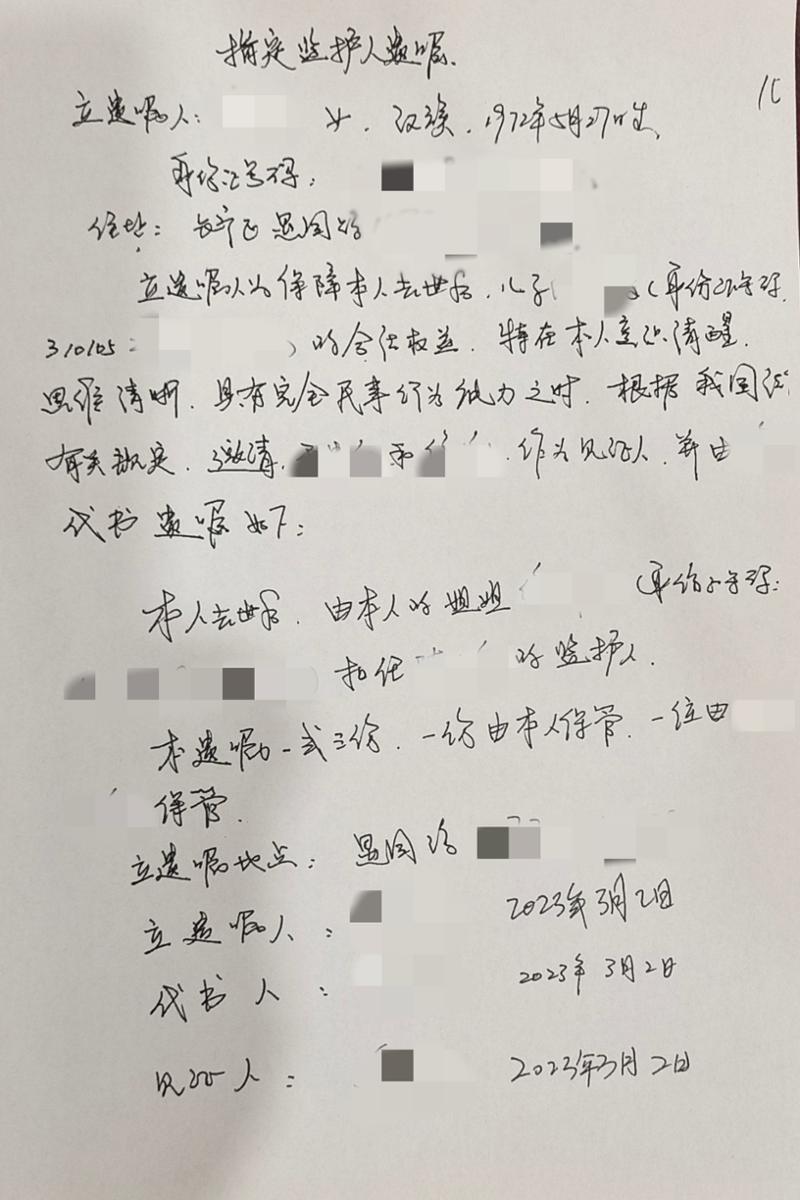 指定监护人遗嘱.
立遗嘱人: 女. 汉族. 1972年5月27日生,
身份证号码:
住址: 长宁区 恩园路
立遗嘱人为保障本人去世后. 儿子 (身份证号码.
310105 ) 的合法权益. 特在本人意识清醒.
思维清晰. 具有完全民事行为能力之时. 根据我国
有关规定. 邀请. 和 . 作为见证人. 并由
代书遗嘱如下:
本人去世后. 由本人的姐姐 (身份证号码:
担任 的监护人.
本遗嘱一式三份. 一份由本人保管. 一位由
保管.
立遗嘱地点: 恩园路
立遗嘱人: 2023年3月2日
代书人: 2023年3月2日
见证人: 2023年3月2日